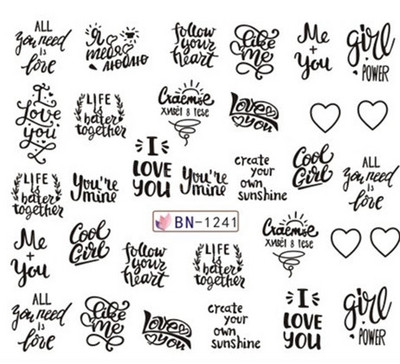 ALL
you need
is
love
Я
тебя
люблю
follow
your
heart
like
me
Me
+
you
girl
POWER
I
Love
you
LIFE
is
bater
together
Счастье
ЖИВЕТ В ТЕБЕ
Love
you
LIFE
is
bater
together
You're
mine
I
LOVE
YOU
You're
mine
create
your
own
sunshine
Cool
Girl
ALL
you need
is
love
BN-1241
Me
+
You
Cool
Girl
follow
your
heart
LIFE
is
bater
together
Счастье
ЖИВЕТ В ТЕБЕ
ALL
you need
is
love
like
me
Love
you
create
your
own
sunshine
I
LOVE
YOU
girl
POWER